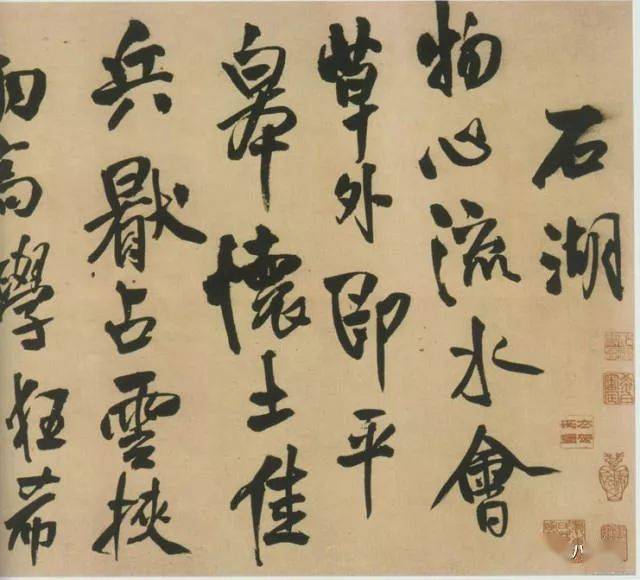 石湖
物心流水會
草外即平
皋懷土佳
兵猒占雲挾
高學狂希